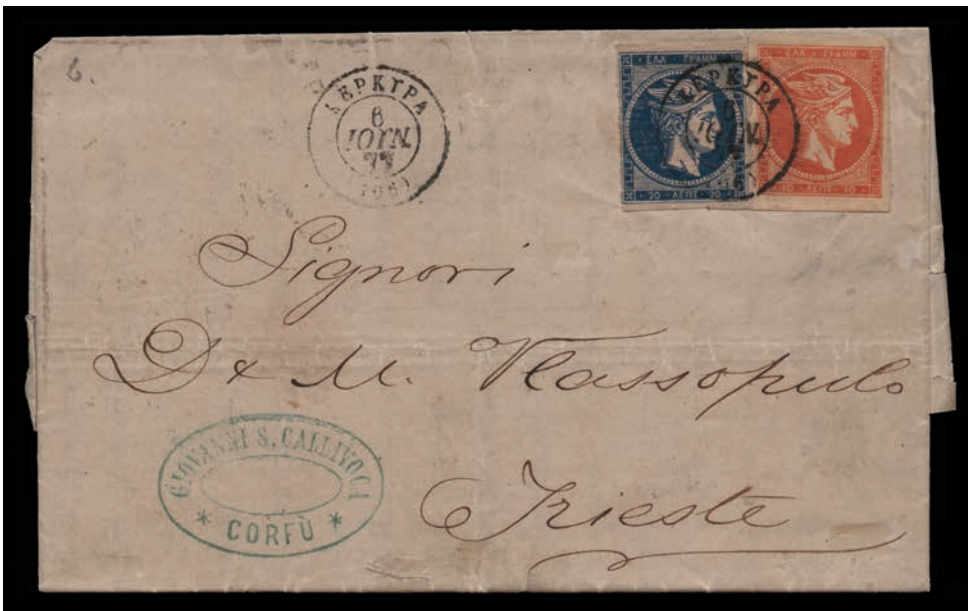 6.
ΚΕΡΚΥΡΑ
6
ΙΟΥΝ.
77
(98)
ΕΛΛ ΓΡΑΜΜ
20 ΛΕΠΤ 20
ΕΛΛ ΓΡΑΜΜ
10 ΛΕΠΤ 10
ΚΕΡΚΥΡΑ
6
Signori
D & M. Vlassopulo
Trieste
GIOVANNI S. CALLIVOCA
* CORFÙ *